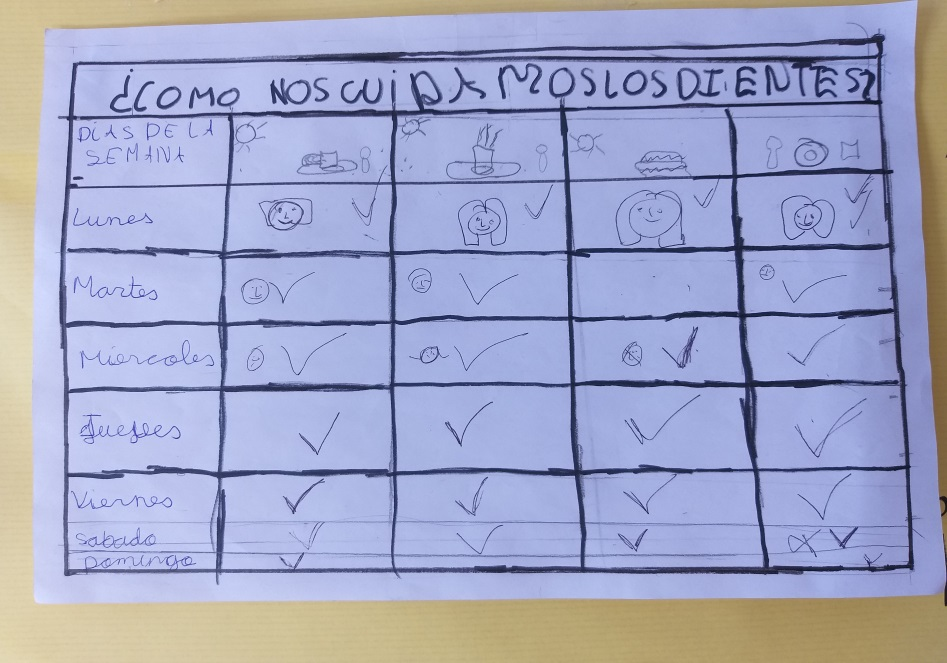 ¿COMO NOS CUIDAMOS LOS DIENTES?
DIAS DE LA
SEMANA
Lunes
Martes
Miercoles
Juefees
Viernes
sabado
Domingo